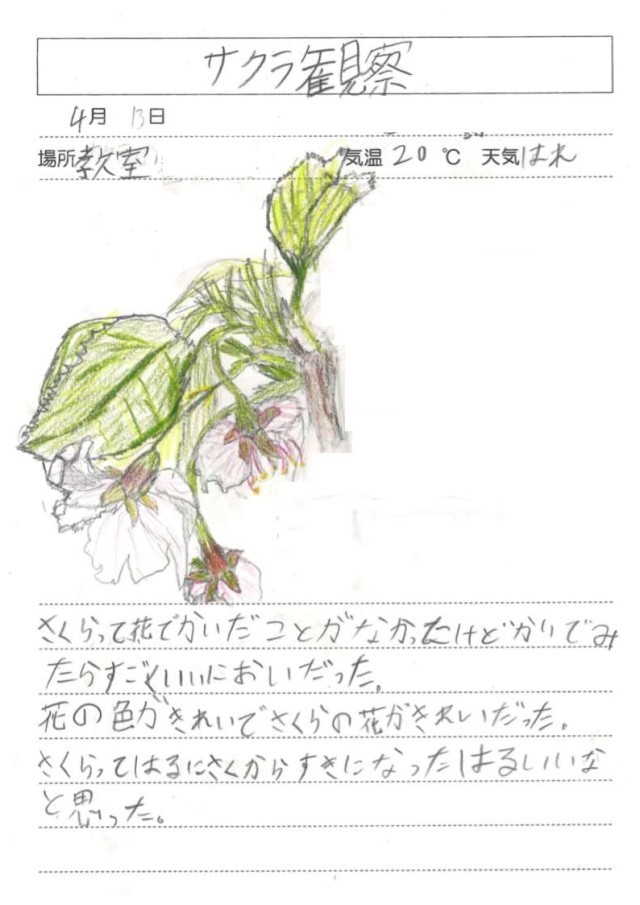 サクラ観察
4月 13日
場所 教室 気温 20 ℃ 天気 はれ
さくらって花でかいだことがなかったけどかいでみ
たらすごくいいにおいだった。
花の色がきれいでさくらの花がきれいだった。
さくらってはるにさくからすきになったはるいいな
と思った。